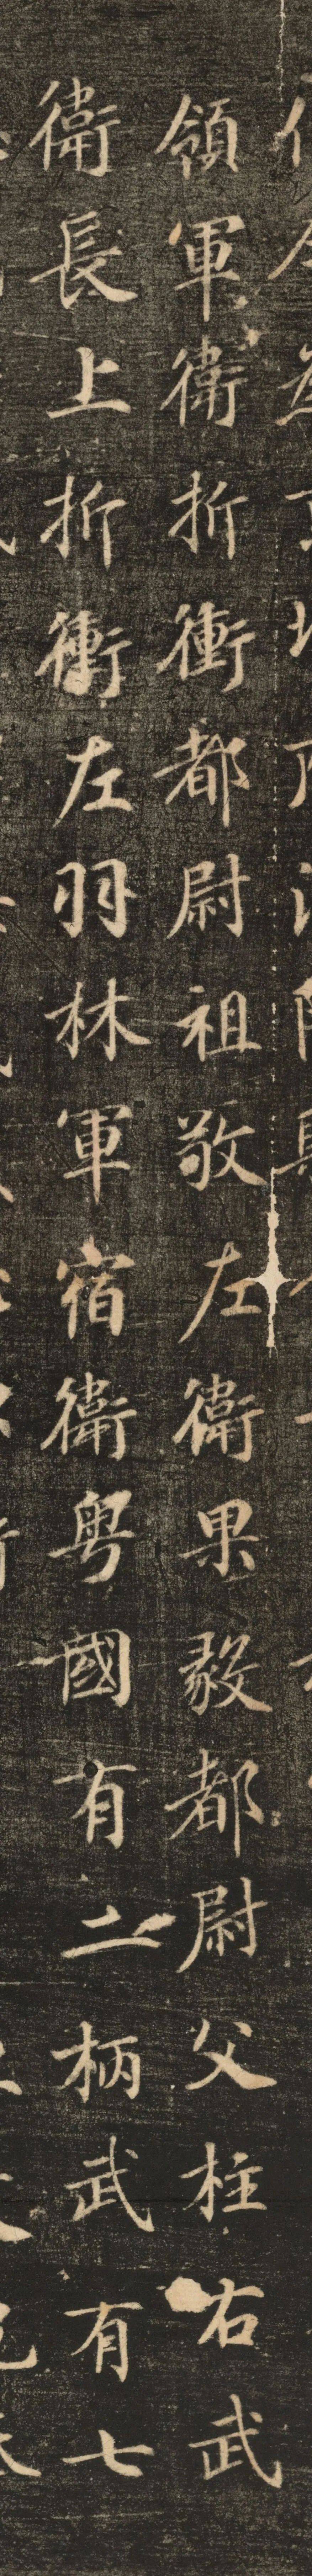 領軍衛折衝都尉祖敬左衛果毅都尉父柱右武
衛長上折衝左羽林軍宿衛粤國有二柄武有七